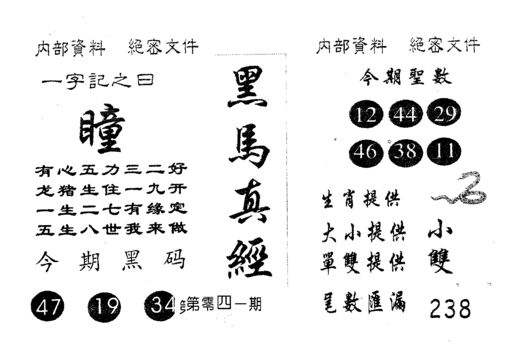 内部資料 絕密文件
一字記之曰
瞳
有心五力三二好
龙猪生住一九开
一生二七有缘定
五生八世我来做
今期黑码
47 19 34
第零四一期
黑馬真經
内部資料 絕密文件
今期聖數
12 44 29
46 38 11
生肖提供
大小提供 小
單雙提供 雙
尾數匯漏 238